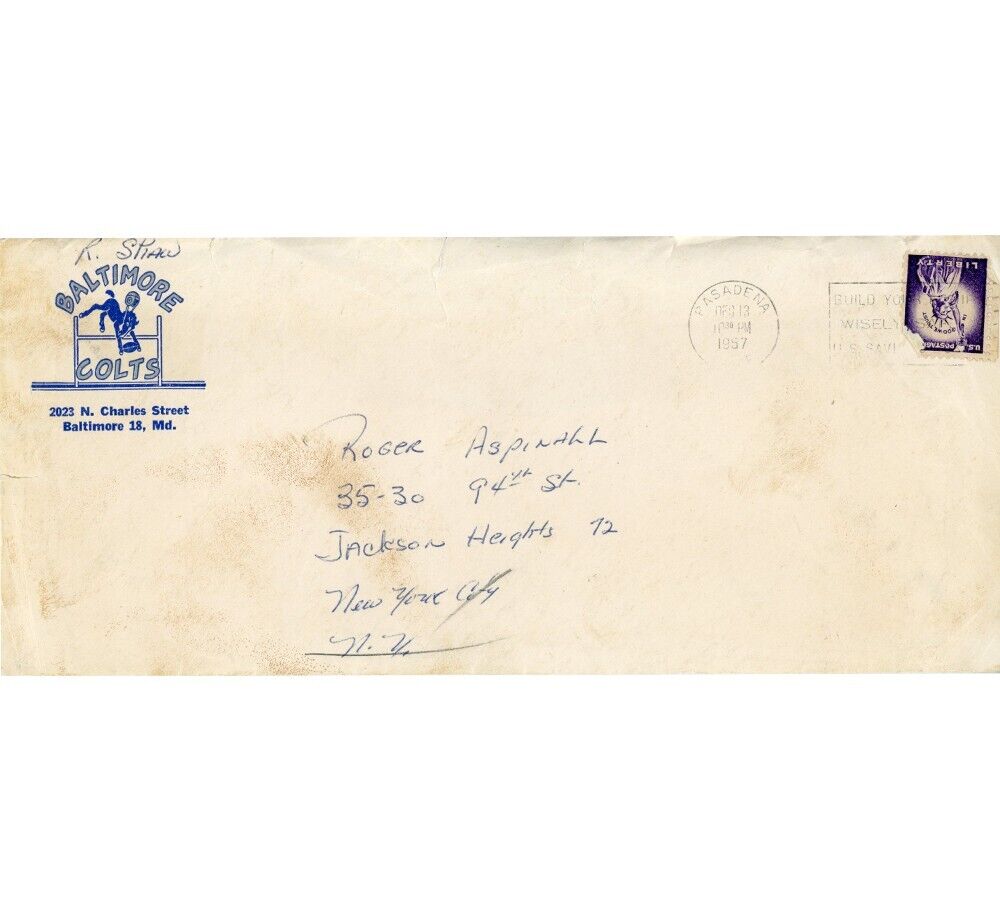 R. SHAW
BALTIMORE
COLTS
2023 N. Charles Street
Baltimore 18, Md.
PASADENA
DEC 13
10 30 PM
1957
BUILD
WISELY
U.S.
LIBERTY
IN GOD WE TRUST
U.S. POSTAGE
ROGER ASPINALL
35-30 94th St.
JACKSON Heights 72
New York City
N.Y.